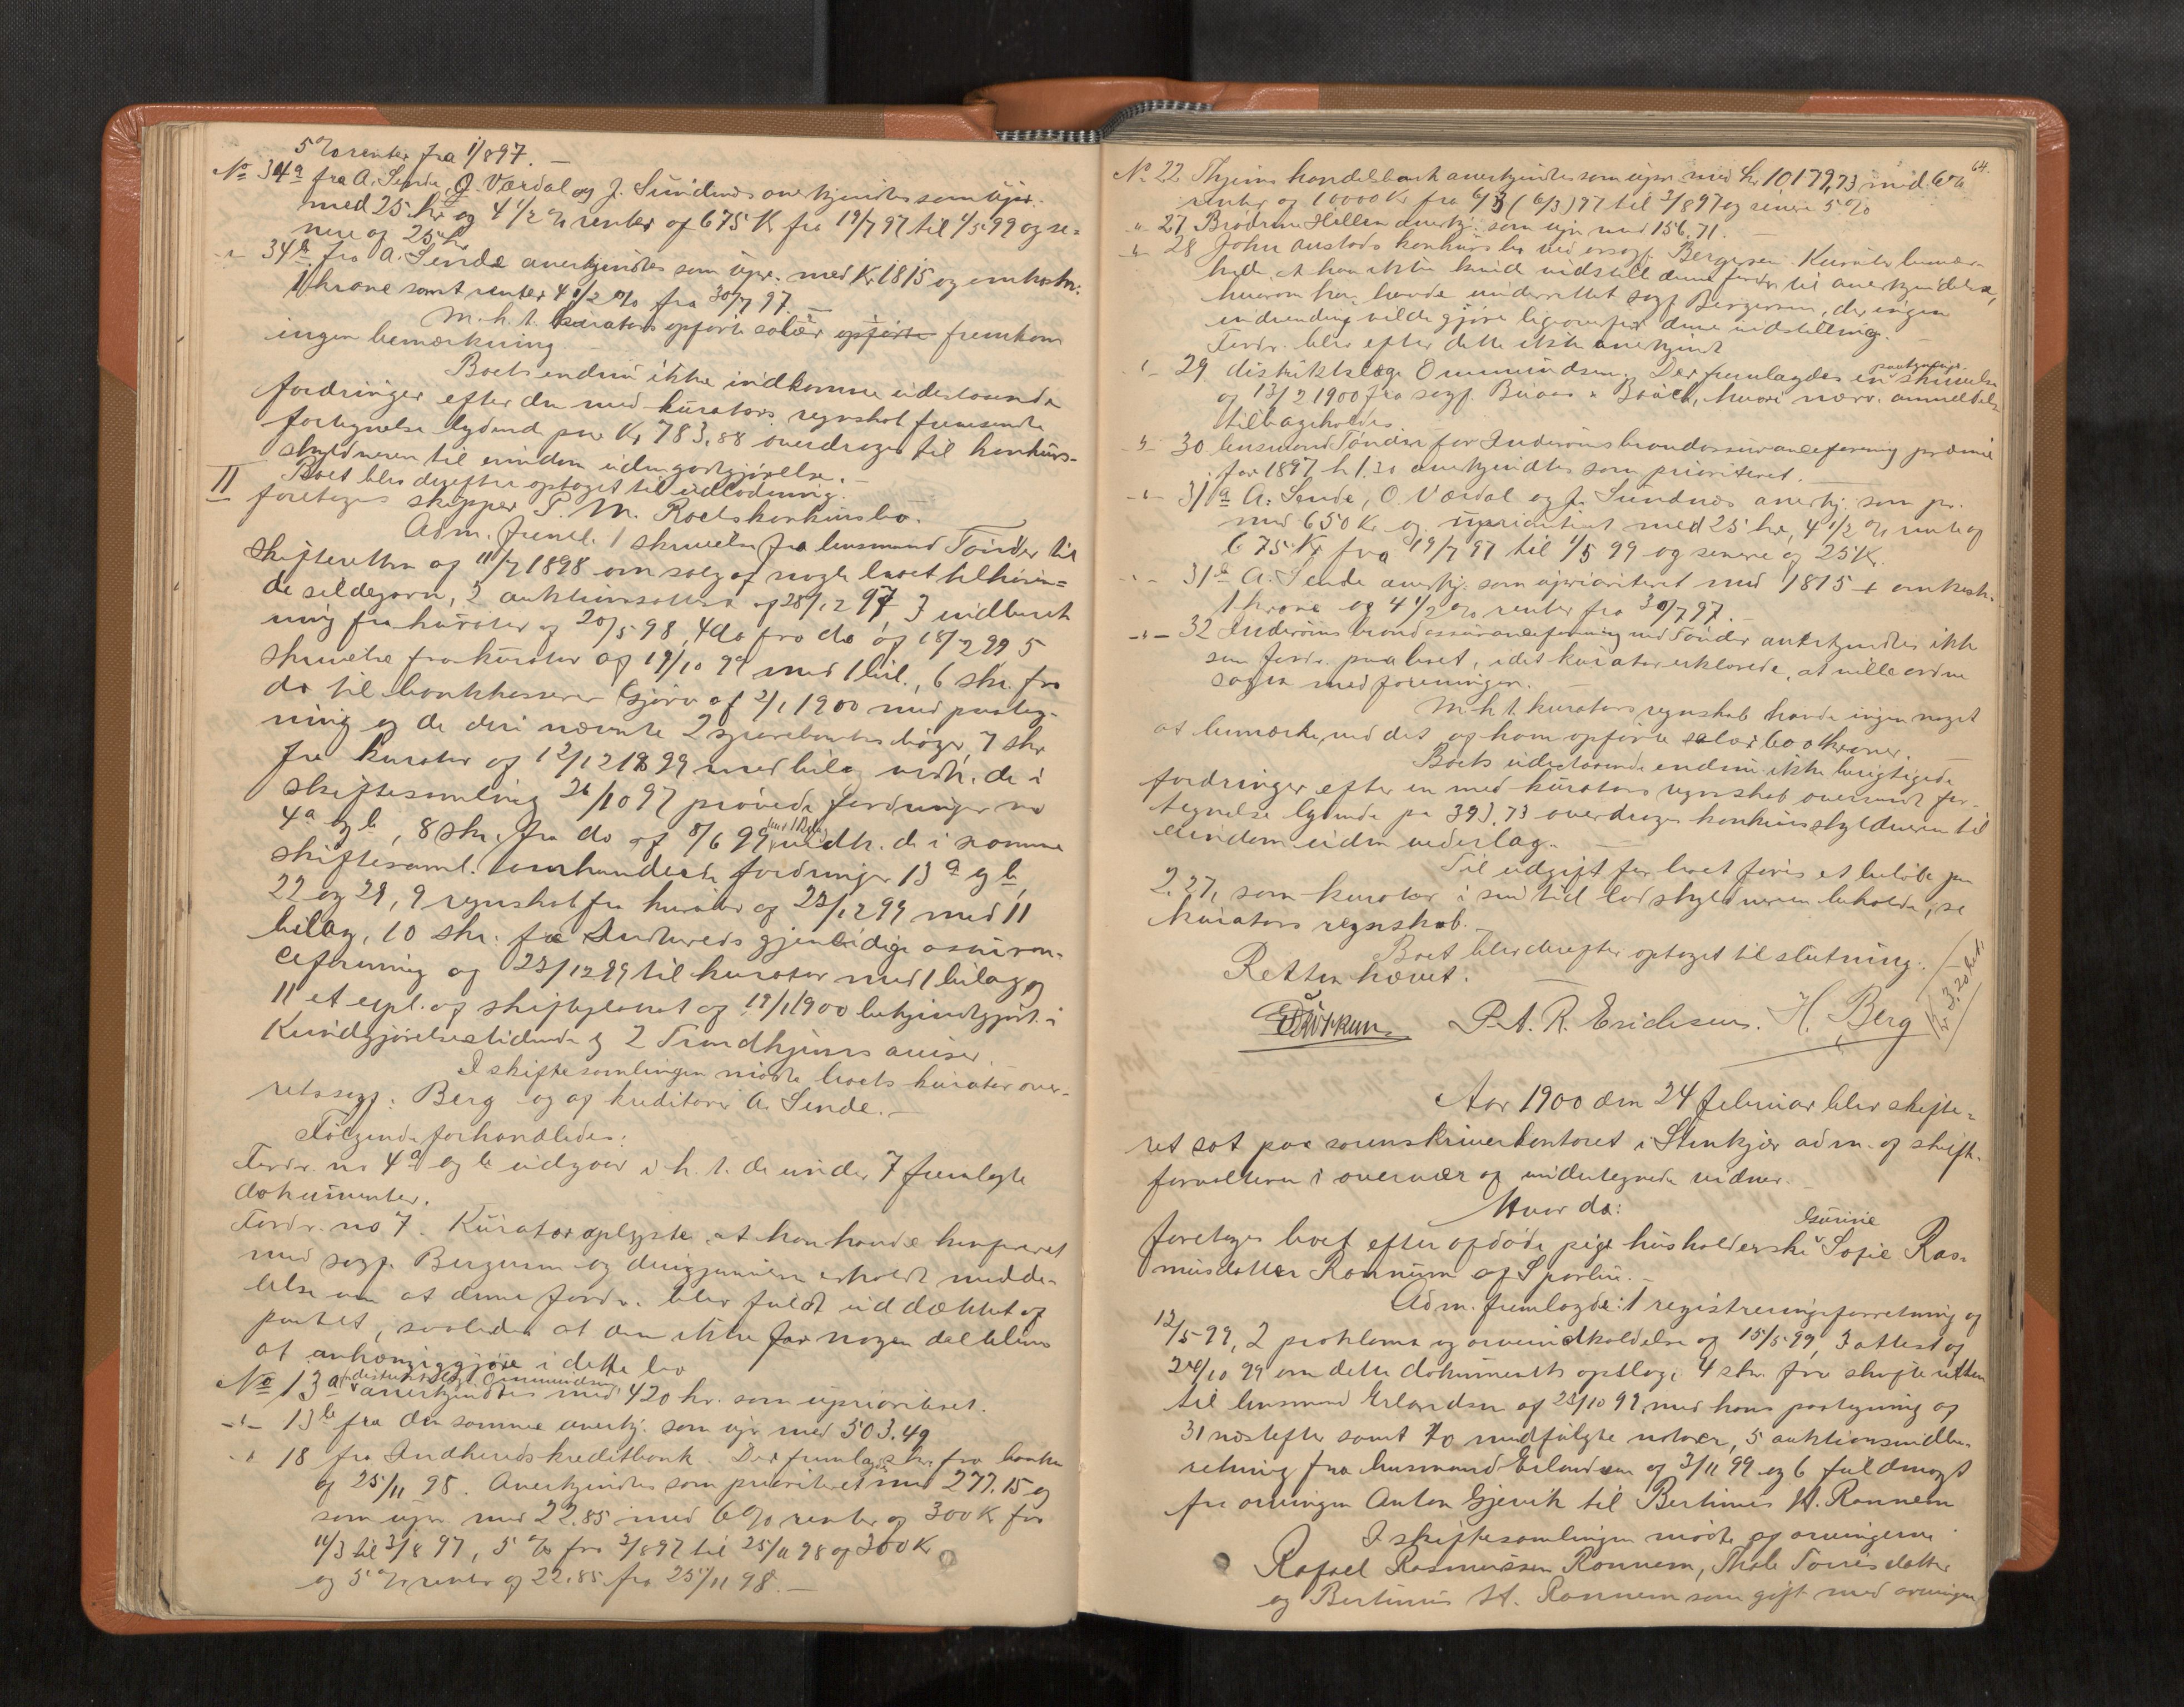 5 % renter fra 1/8 97. —
No 34a fra A. Sende, O. Værdal og J. Sundnes anerkjendtes som upr.
med 25 kr og 4 1/2 % renter af 675 Kr fra 19/7 97 til 1/5 99 og se=
nere af 25 kr
-"- 34b fra A. Sende anerkjendtes som upr. med Kr 1815 og omkostn:
1 krone samt renter 4 1/2 % fra 30/7 97. —
M. h. t. kurators opførte salær opførte fremkom
ingen bemærkning.
Boets endnu ikke indkomne udestaaende
fordringer efter den med kurators regnskab fremsendte
fortegnelse lydende paa Kr 783,88 overdroges til konkurs-
skyldneren til eiendom uden godtgjørelse. —
Boet blev derefter optaget til udlodning.
II foretoges skipper P. M. Roels konkursbo.
Adm. freml. 1 skrivelse fra lensmand Tønder til
skifteretten af 11/7 1898 om salg af nogle boet tilhøren=
de sildegarn, 2 auktionsattest af 28/12 97 3 indberet
ning fra kurator af 20/5 98, 4 do fra do af 18/2 99 5
skrivelse fra kurator af 19/10 99 med 1 bil., 6 skr. fra
do til bankkasserer Gjørv af 2/1 1900 med paateg-
ning og de deri nævnte 2 sparebankbøger, 7 skr
fra kurator af 12/12 1899 med bilag vedk. de i
skiftesamling 26/10 97 prøvede fordringer no
4a og b, 8 skr. fra do af 8/6 99 med 1 bilag vedk. de i samme
skiftesaml. omhandlede fordringer 13a og b,
22 og 29, 9 regnskab fra kurator af 23/12 99 med 11
bilag, 10 skr. fra Indherreds gjensidige assuran-
ceforening af 23/12 99 til kurator med 1 bilag og
11 et expl. af skifteplanet af 19/1 1900 bekjendtgjort i
Kundgjørelsestidende og 2 Trondhjems aviser.
I skiftesamlingen mødte boets kurator over-
retssagf. Berg og af kreditorer A. Sende. —
Følgende forhandledes:
Fordr. no 4a og b udgaar i h. t. de under 7 fremlagte
dokumenter.
Fordr. no 7. Kurator oplyste at han havde konfereret
med sagf. Bergesen og derigjennem erholdt medde-
lelse om at denne fordr. blev fuldt ud dækket af
pantet, saaledes at den ikke for nogen del bliver
at anhængiggjøre i dette bo
No 13a fra distriktslæge Ommundsen anerkjendtes med 420 kr. som uprioriteret.
-"- 13b fra den samme anerkj. som upr med 503.49
-"- 18 fra Indherreds kreditbank. Der fremlagdes skr. fra banken
af 25/11 98. Anerkjendtes som prioriteret med 277.15 og
som upr. med 22.85 med 6 % renter af 300 Kr fra
11/3 til 3/8 97, 5 % fra 3/8 97 til 25/11 98 af 300 Kr
og 5 % renter af 22.85 fra 25/11 98. —
64.
No 22 Thjems handelsbank anerkjendtes som upr. med Kr 10179,73 med 6 %
renter af 10000 Kr fra 6/3 (6/3) 97 til 3/8 97 og senere 5 %
-"- 27 Brødrene Hellem anerkj. som upr med 156.71. —
-"- 28 John Austads konkursbo ved orsagf. Bergesen. Kurator bemær-
kede, at han ikke kunde indstille denne fordr. til anerkjendelse,
hvorom han havde underrettet sagf. Bergesen, der ingen
indvending vilde gjøre ligeoverfor denne indstilling.
Fordr. blev efter dette ikke anerkjendt
-"- 29 distriktslæge Ommundsen. Der fremlagdes en skrivelse
af 13/2 1900 fra sagf. Buaas & Bauck, hvori nærv. anmeldelse
tilbageholdes.
-"- 30 lensmand Tønder for Inderøens brandassuranceforening præmie
for 1897 kr 1.30 anerkjendtes som prioriteret. —
-"- 31a A. Sende, O. Værdal og J. Sundnes anerkj. som pr.
med 650 Kr og uprioriteret med 25 kr, 4 1/2 % rente af
675 Kr fra 19/7 97 til 1/5 99 og senere af 25 Kr.
-"- 31b A. Sende anerkj. som uprioriteret med 1815 + omkost.
1 krone og 4 1/2 % renter fra 30/7 97. —
-"- 32 Inderøens brandassuranceforening ved Tønder anerkjendtes ikke
som fordr. paa boet, idet kurator erklærede, at ville ordne
sagen med foreningen.
M. h. t. kurators regnskab havde ingen noget
at bemærke, ved det af ham opførte salær 600 kroner.
Boets udestaaende endnu ikke berigtigede
fordringer efter en med kurators regnskab oversendt for-
tegnelse lydende paa 393.73 overdroges konkursskyldneren til
eiendom uden vederlag. —
Til udgift for boet føres et beløb paa
2.27, som kurator i sin tid lod skyldneren beholde, se
kurators regnskab.
Boet blev derefter optaget til slutning.
Retten hævet. —
P. A. R. Erichsen. H. Berg
Kr 3.20 bet.
Aar 1900 den 24 februar blev skifte=
ret sat paa sorenskriverkontoret i Stenkjær adm. af skift.
forvalteren i overvær af undertegnede vidner. —
Hvor da:
foretoges boet efter afdøde pige husholderske Gurine Sofie Ras-
musdatter Ronnem af Sparbu. —
Adm. fremlagde: 1 registreringsforretning af
12/5 99, 2 proklama og arveindkaldelse af 15/5 99, 3 attest af
24/10 99 om dette dokuments opslag, 4 skr. fra skifteretten
til lensmand Erlandsen af 28/10 99, med hans paategning af
31 næstefter samt 70 medfulgte notaer, 5 auktionsindbe-
retning fra lensmand Erlandsen af 3/11 99 og 6 fuldmagt
fra arvingen Anton Gjevik til Bertinus H. Ronnem
I skiftesamlingen mødte af arvingerne
Rafael Rasmussen Ronnem, Thale Tørrisdatter
og Bertinus H. Ronnem som gift med arvingen